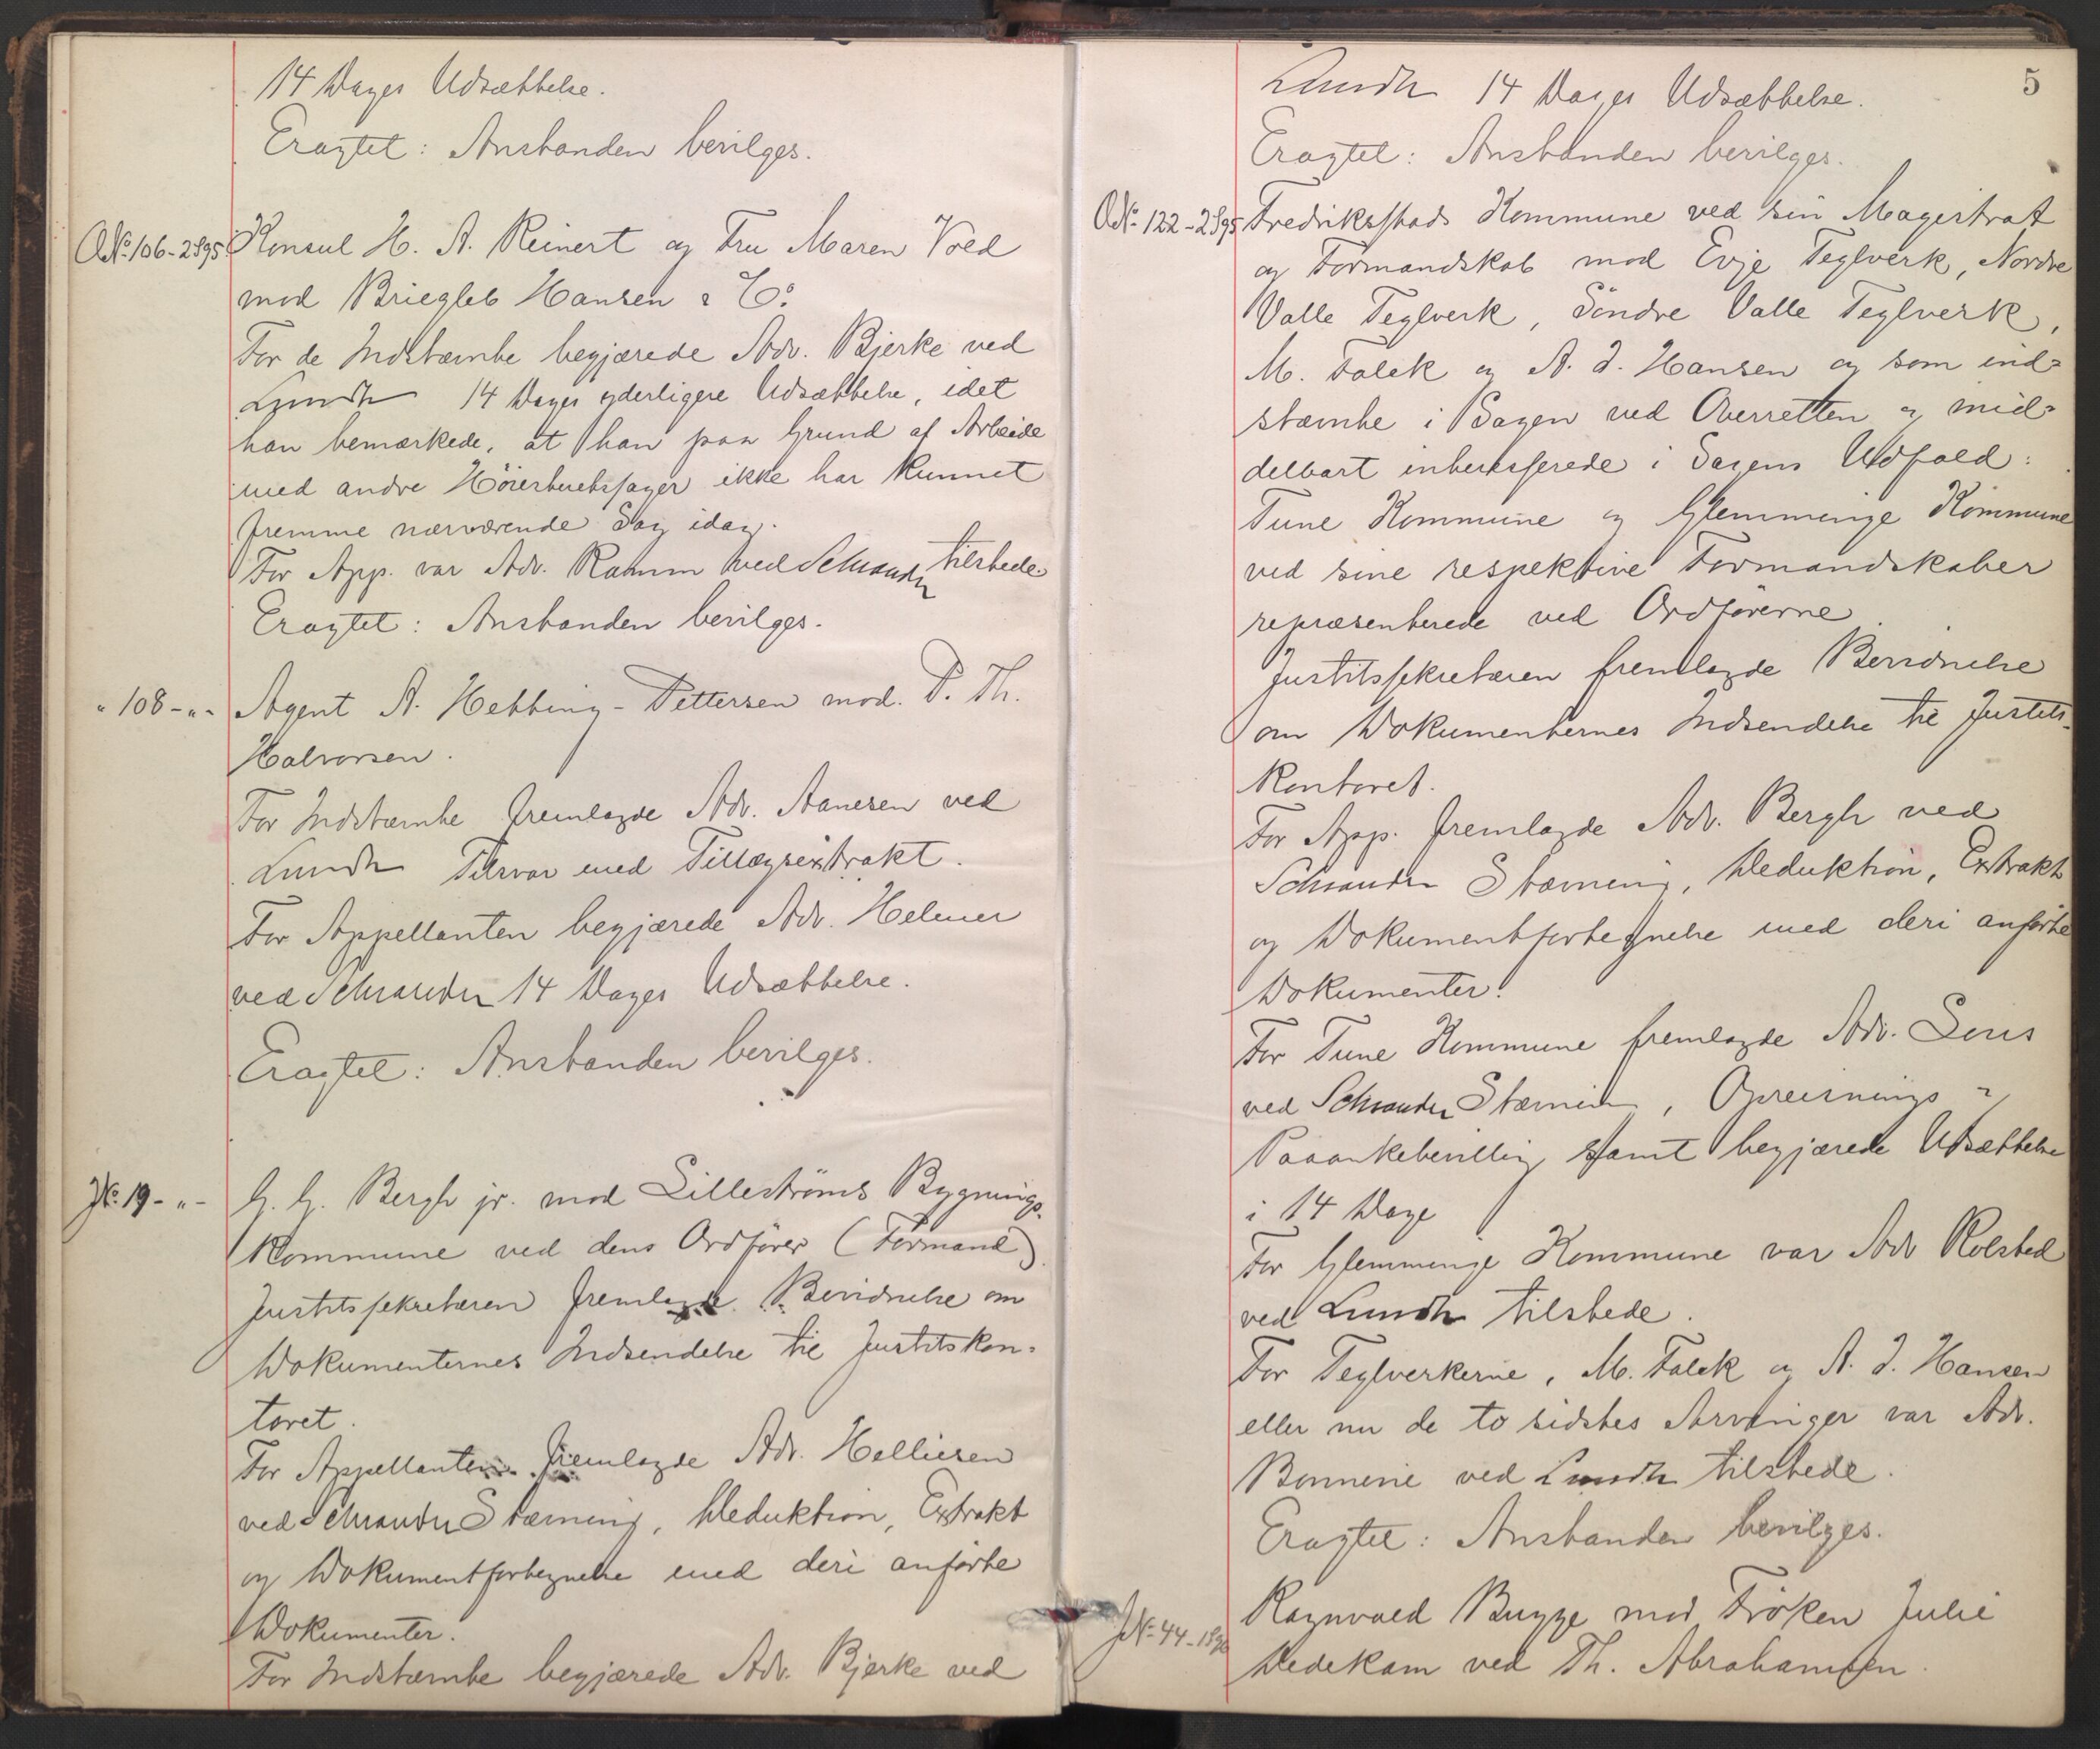 14 Dages Udsættelse.
Eragtet: Anstanden bevilges.
O№ 106-2 S95 Konsul H. A. Reinert og Fru Maren Vold
mod Briegleb Hansen & Co.
For de Indstævnte begjærede Adv. Bjerke ved
Lundh 14 Dages yderligere Udsættelse, idet
han bemærkede, at han paa Grund af Arbeide
med andre Höiesteretssager ikke har kunnet
fremme nærværende Sag idag.
For App. var Adv. Ramm ved Schrander tilstede.
Eragtet: Anstanden bevilges.
" 108-"- Agent A. Hebbing-Pettersen mod P. Th.
Halvorsen.
For Indstævnte fremlagde Adv. Aanesen ved
Lundh Tilsvar med Tillægsextrakt.
For Appellanten begjærede Adv. Helmer
ved Schrander 14 Dages Udsættelse.
Eragtet: Anstanden bevilges.
J№ 19-"- G. G. Bergh jr. mod Lilleströms Bygnings-
kommune ved dens Ordförer (Formand)
Justitssekretæren fremlagde Bevidnelse om
Dokumenternes Indsendelse til Justitskon-
toret.
For Appellanten fremlagde Adv. Helliesen
ved Schrander Stævning, Deduktion, Extrakt
og Dokumentfortegnelse med deri anförte
Dokumenter.
For Indstævnte begjærede Adv. Bjerke ved
5
Lundh 14 Dages Udsættelse.
Eragtet: Anstanden bevilges.
O№ 122-2 S95 Fredriksstads Kommune ved sin Magistrat
og Formandskab mod Evje Teglverk, Nordre
Valle Teglverk, Söndre Valle Teglverk,
M. Falck og A. J. Hansen og som ind-
stævnte i Sagen ved Overretten og mid-
delbart interesserede i Sagens Udfald:
Tune Kommune og Glemminge Kommune
ved sine respektive Formandskaber
repræsenterede ved Ordförerne.
Justitssekretæren fremlagde Bevidnelse
om Dokumenternes Indsendelse til Justits-
kontoret.
For App. fremlagde Adv. Bergh ved
Schrander Stævning, Deduktion, Extrakt
og Dokumentfortegnelse med deri anförte
Dokumenter.
For Tune Kommune fremlagde Adv.
ved Schrander Stævning, Opreisnings &
Paaankebevilling samt begjærede Udsættelse
i 14 Dage
For Glemminge Kommune var Adv Rolsted
ved Lundh tilstede.
For Teglverkerne, M. Falck og A. J. Hansen
eller nu de to sidstes Arvinger var Adv.
Bonnevie ved Lundh tilstede.
Eragtet: Anstanden bevilges.
J№ 44-1896 Ragnvald Bugge mod Fröken Julie
Dedekam ved Th. Abrahamsen.